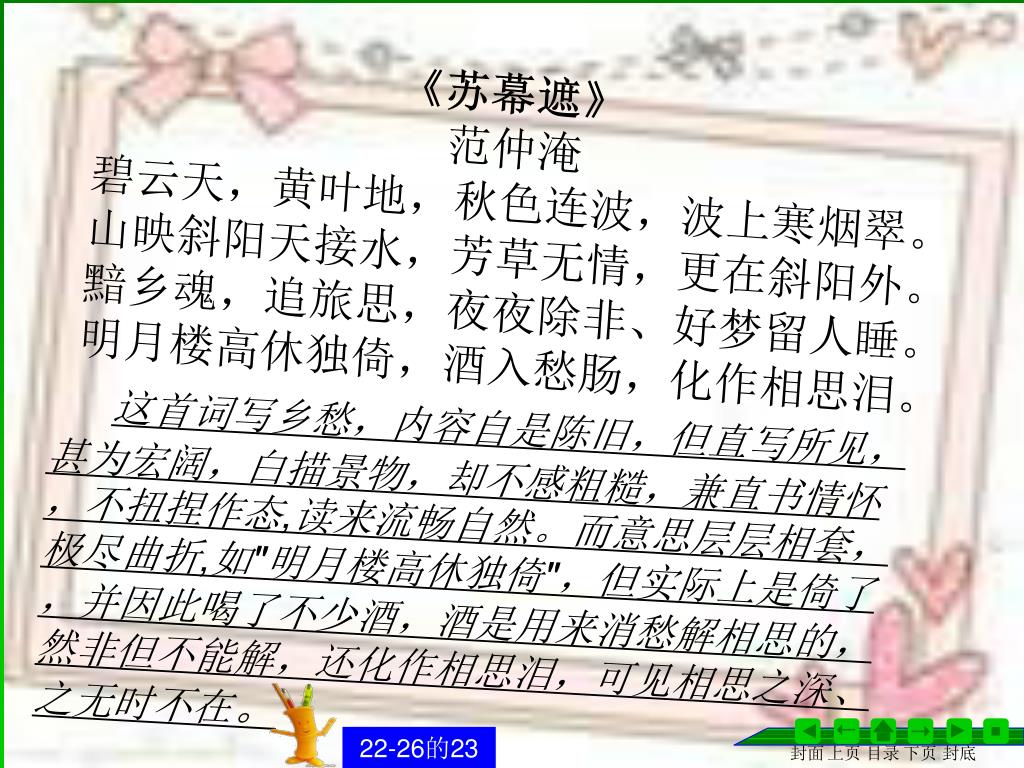 《苏幕遮》
范仲淹
碧云天，黄叶地，秋色连波，波上寒烟翠。
山映斜阳天接水，芳草无情，更在斜阳外。
黯乡魂，追旅思，夜夜除非、好梦留人睡。
明月楼高休独倚，酒入愁肠，化作相思泪。
这首词写乡愁，内容自是陈旧，但直写所见，
甚为宏阔，白描景物，却不感粗糙，兼直书情怀
，不扭捏作态,读来流畅自然。而意思层层相套，
极尽曲折,如"明月楼高休独倚"，但实际上是倚了
，并因此喝了不少酒，酒是用来消愁解相思的，
然非但不能解，还化作相思泪，可见相思之深、
之无时不在。
22-26的23
封面 上页 目录 下页 封底